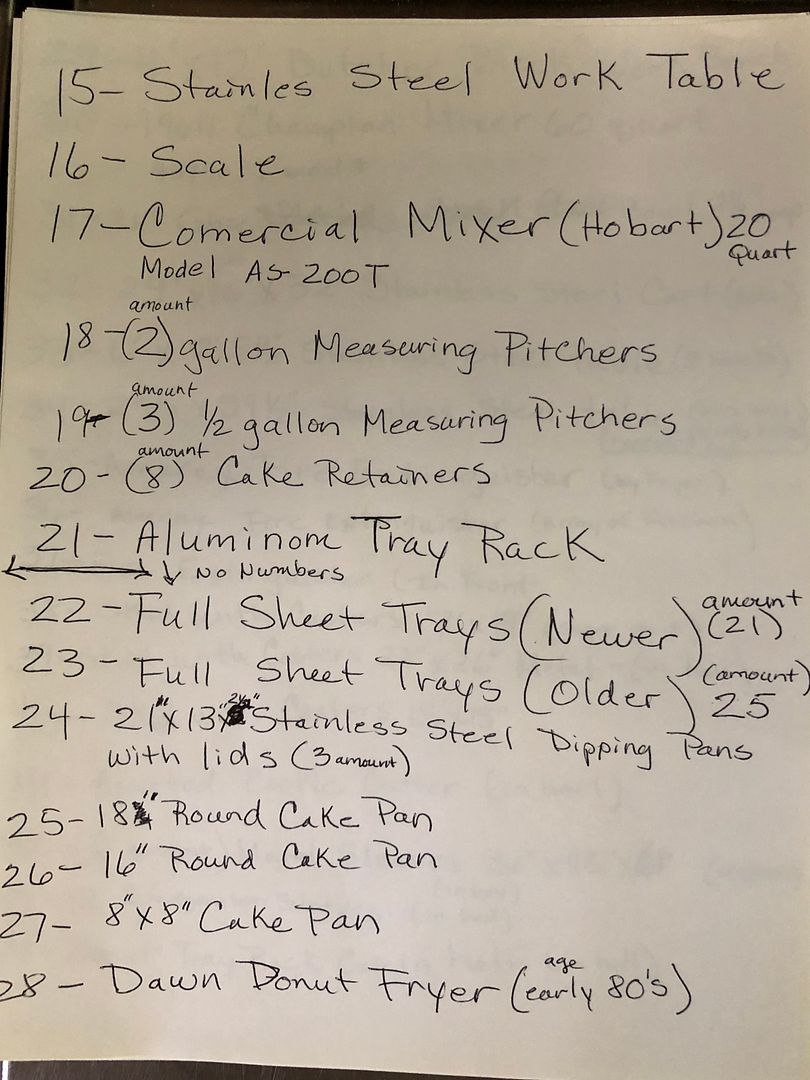 15- Stainles Steel Work Table
16- Scale
17- Comercial Mixer (Hobart) 20 Quart
Model AS-200T
amount
18-(2) gallon Measuring Pitchers
amount
19- (3) 1/2 gallon Measuring Pitchers
amount
20- (8) Cake Retainers
21- Aluminom Tray Rack
No Numbers
22- Full Sheet Trays (Newer) amount (21)
23- Full Sheet Trays (Older) (amount) 25
24- 21"x13"x 2½" Stainless Steel Dipping Pans
with lids (3 amount)
25- 18" Round Cake Pan
26- 16" Round Cake Pan
27- 8"x8" Cake Pan
age
28- Dawn Donut Fryer (early 80's)